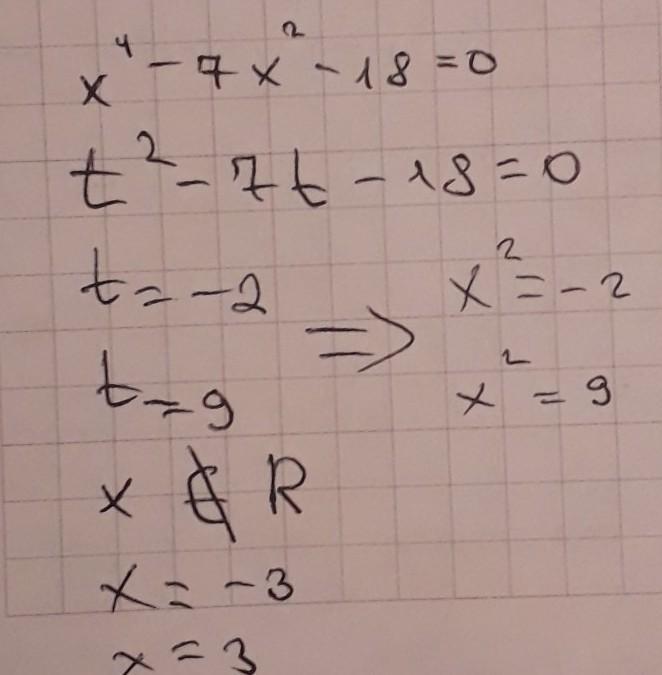 x⁴ - 7x² - 18 = 0
t² - 7t - 18 = 0
t = -2
t = 9
⇒
x² = -2
x² = 9
x ∉ R
x = -3
x = 3